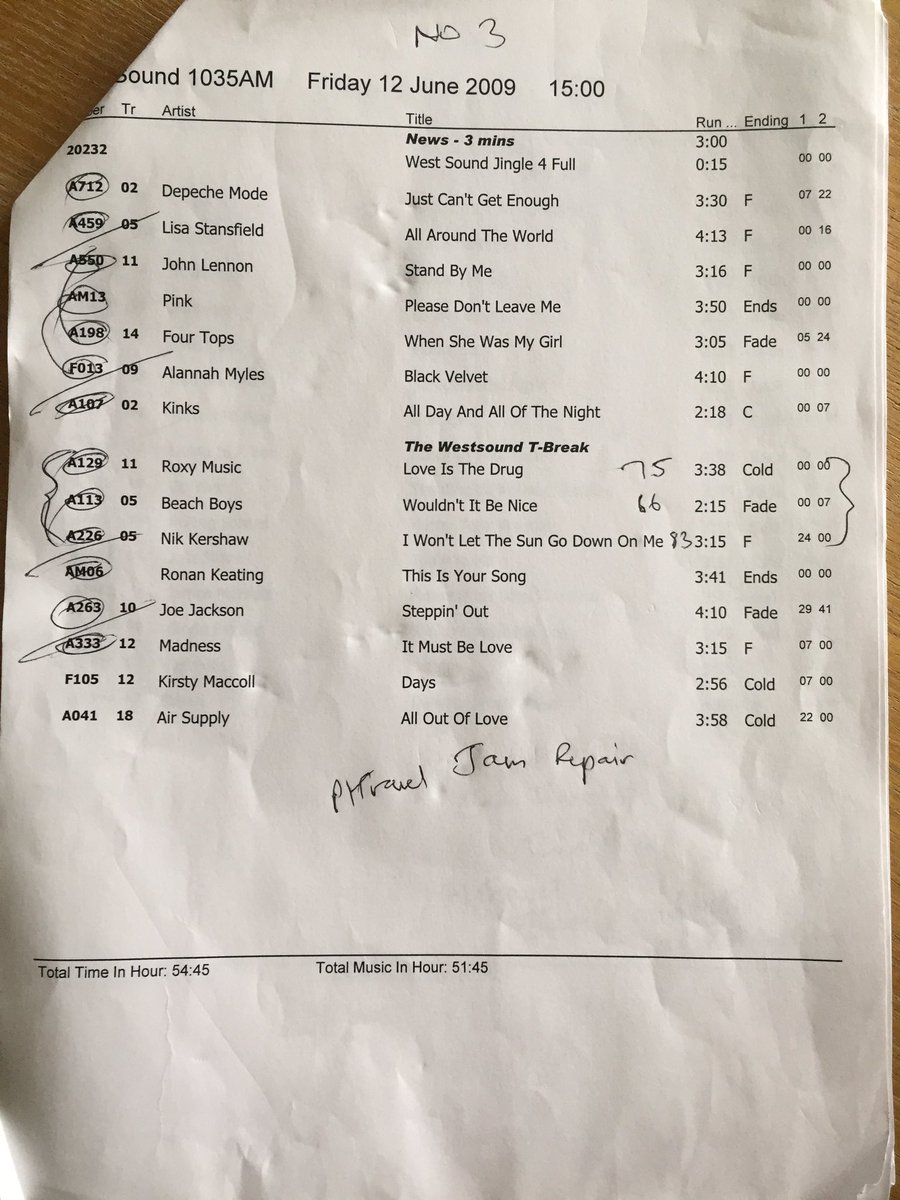 No 3
Sound 1035AM Friday 12 June 2009 15:00
er Tr Artist Title Run ... Ending 1 2
News - 3 mins 3:00
20232 West Sound Jingle 4 Full 0:15 00 00
A712 02 Depeche Mode Just Can't Get Enough 3:30 F 07 22
A459 05 Lisa Stansfield All Around The World 4:13 F 00 16
A550 11 John Lennon Stand By Me 3:16 F 00 00
AM13 Pink Please Don't Leave Me 3:50 Ends 00 00
A198 14 Four Tops When She Was My Girl 3:05 Fade 05 24
F013 09 Alannah Myles Black Velvet 4:10 F 00 00
A107 02 Kinks All Day And All Of The Night 2:18 C 00 07
The Westsound T-Break
A129 11 Roxy Music Love Is The Drug 75 3:38 Cold 00 00
A113 05 Beach Boys Wouldn't It Be Nice 66 2:15 Fade 00 07
A226 05 Nik Kershaw I Won't Let The Sun Go Down On Me 83 3:15 F 24 00
AM06 Ronan Keating This Is Your Song 3:41 Ends 00 00
A263 10 Joe Jackson Steppin' Out 4:10 Fade 29 41
A333 12 Madness It Must Be Love 3:15 F 07 00
F105 12 Kirsty Maccoll Days 2:56 Cold 07 00
A041 18 Air Supply All Out Of Love 3:58 Cold 22 00
Jam Repair
Total Time In Hour: 54:45 Total Music In Hour: 51:45